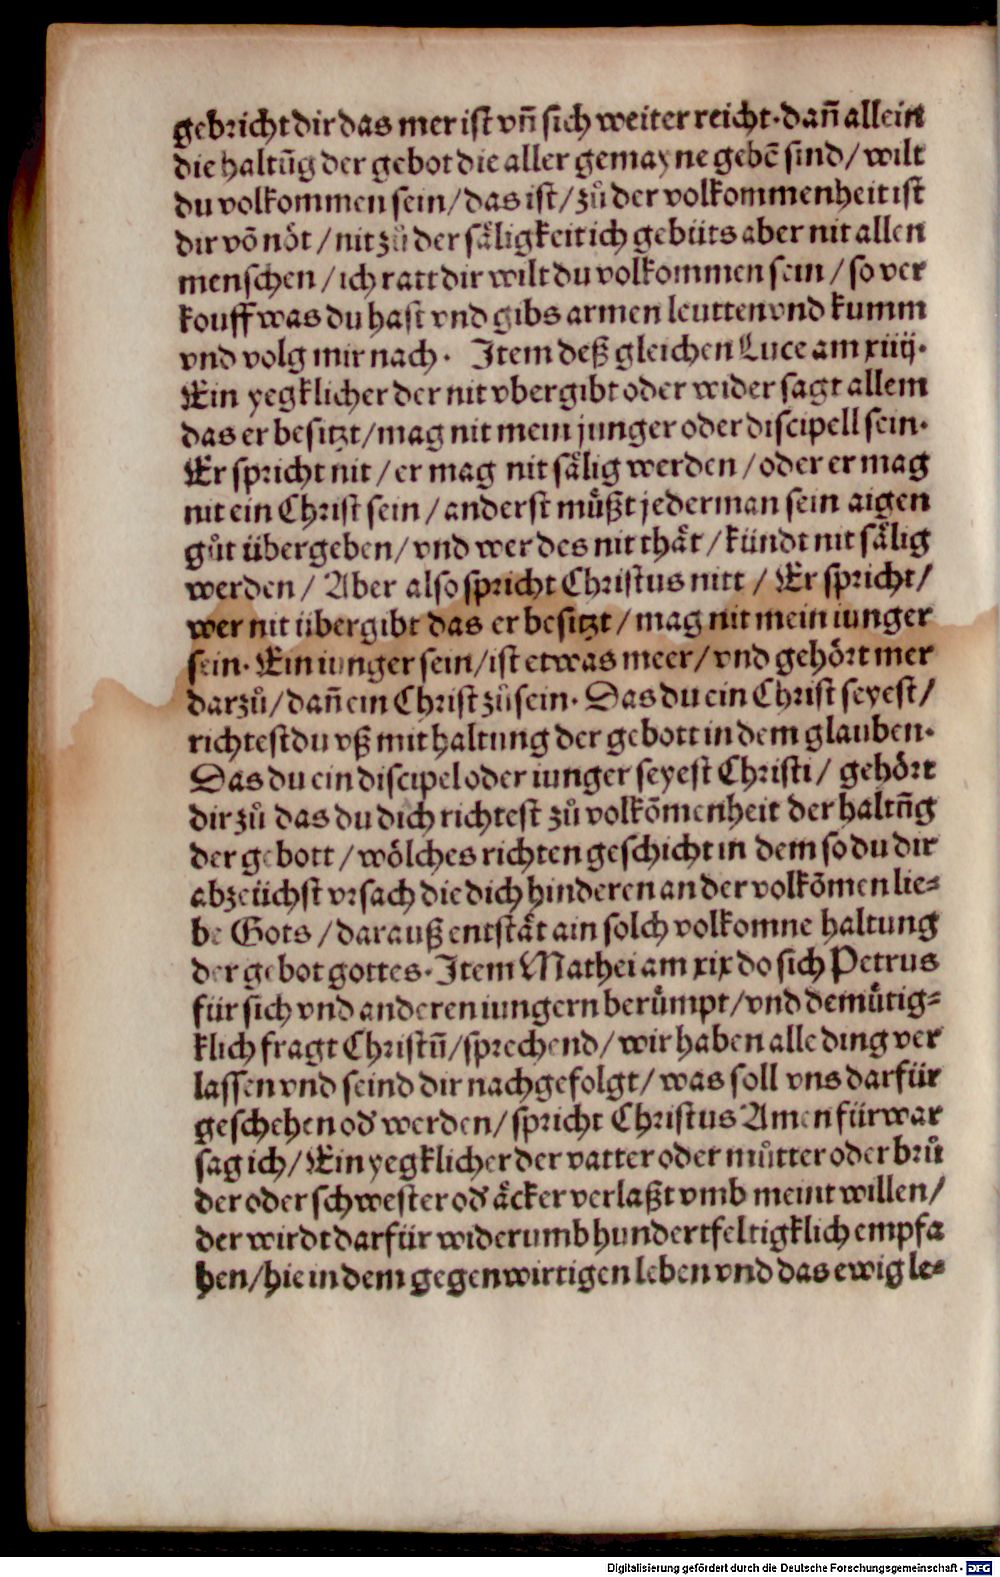 gebricht dir das mer ist vñ sich weiter reicht. dañ allein
die haltũg der gebot die aller gemayne gebẽ sind/ wilt
du volkommen sein/ das ist/ zů der volkommenheit ist
dir võ nöt / nit zů der säligkeit ich gebüts aber nit allen
menschen / ich ratt dir wilt du volkommen sein / so ver
kouff was du hast vnd gibs armen leutten vnd kumm
vnd volg mir nach. Item deß gleichen Luce am xiiij.
Ein yegklicher der nit vbergibt oder wider sagt allem
das er besitzt/ mag nit mein junger oder discipell sein.
Er spricht nit / er mag nit sälig werden / oder er mag
nit ein Christ sein / anderst müßt jederman sein aigen
gůt übergeben/ vnd wer des nit thät / kündt nit sälig
werden / Aber also spricht Christus nitt / Er spricht/
wer nit übergibt das er besitzt / mag nit mein iunger
sein. Ein iunger sein/ ist etwas meer/ vnd gehört mer
darzů/ dañ ein Christ zů sein. Das du ein Christ seyest/
richtest du vß mit haltung der gebott in dem glauben.
Das du ein discipel oder iunger seyest Christi/ gehört
dir zů das du dich richtest zů volkõmenheit der haltũg
der gebott / wölches richten geschicht in dem so du dir
abzeüchst vrsach die dich hinderen an der volkõmen lie⸗
be Gots / darauß entstät ain solch volkomne haltung
der gebot gottes. Item Mathei am xix do sich Petrus
für sich vnd anderen iungern berümpt/ vnd demütig⸗
klich fragt Christũ/ sprechend/ wir haben alle ding ver
lassen vnd seind dir nachgefolgt/ was soll vns darfür
geschehen od' werden/ spricht Christus Amen fürwar
sag ich/ Ein yegklicher der vatter oder můtter oder brů
der oder schwester od' äcker verlaßt vmb meint willen/
der wirdt darfür widerumb hundertfeltigklich empfa
hen/ hie in dem gegenwirtigen leben vnd das ewig le⸗
Digitalisierung gefördert durch die Deutsche Forschungsgemeinschaft - DFG